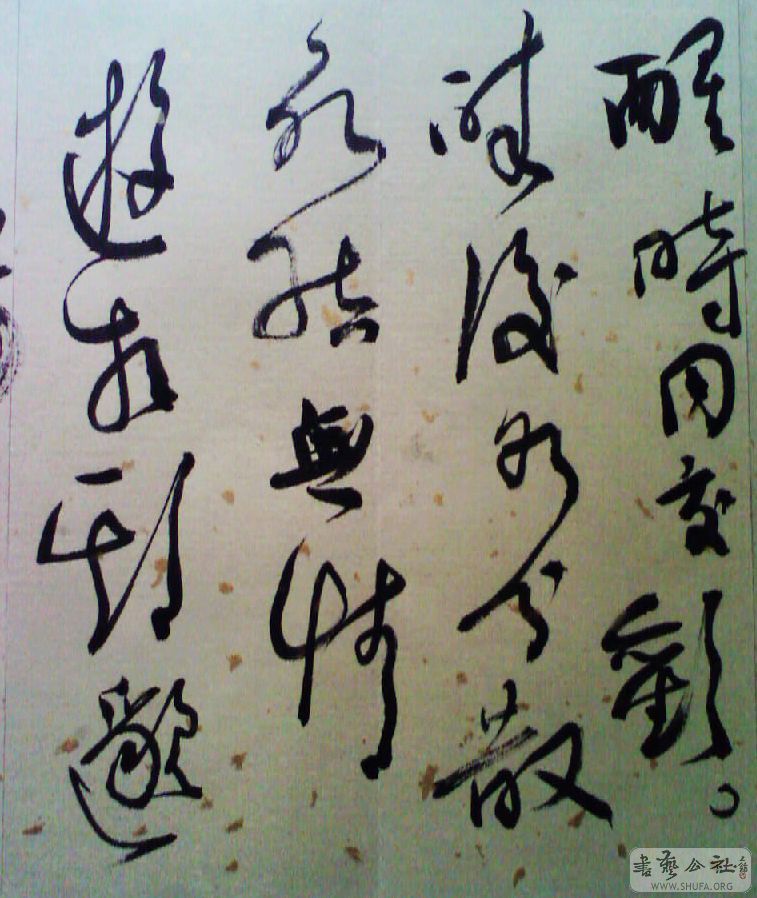 醒時同交歡
醉後各分散
永結無情
遊相期邈
書藝公社
WWW.SHUFA.ORG